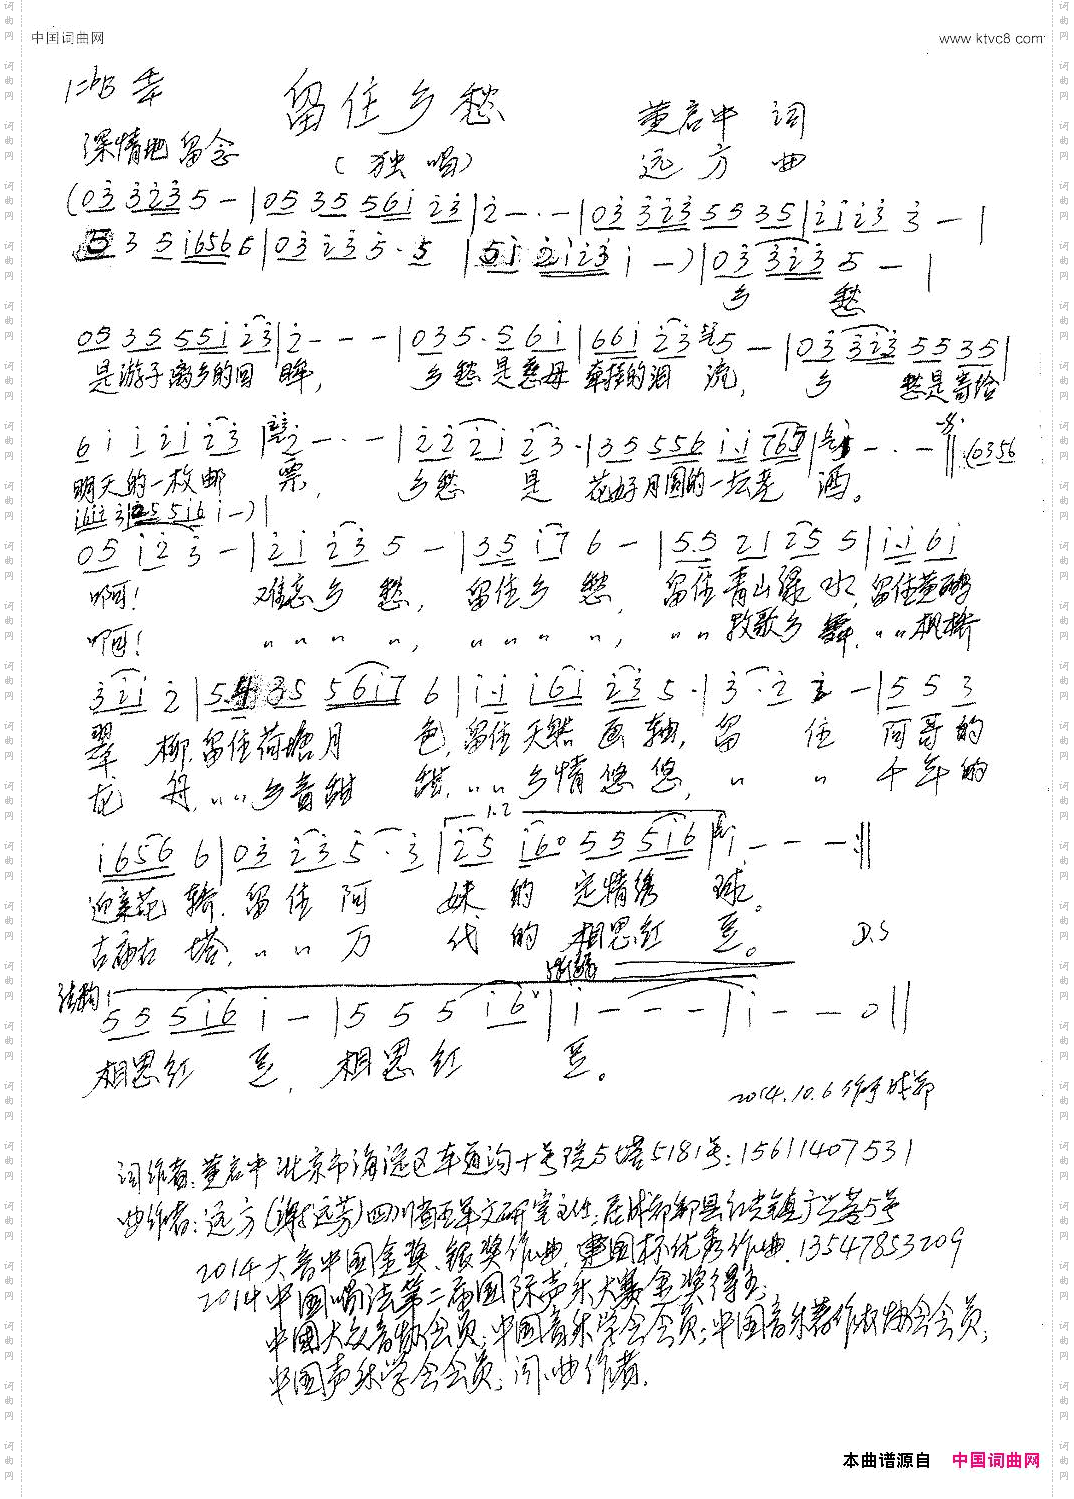 中国词曲网
www.ktvc8.com
1=♭B 4/4
留住乡愁
黄启中 词
深情地 留念
(独唱)
远方 曲
(0 3 3 2 3 5 - | 0 5 3 5 5 6 1 2 3 | 2 - · - | 0 3 3 2 3 5 5 3 5 | 2 1 2 3 3 - |
5 3 5 1 6 5 6 6 | 0 3 2 3 5 · 5 | 5 1 2 1 2 3 1 - ) | 0 3 3 2 3 5 - |
乡 愁
0 5 3 5 5 5 1 2 3 | 2 - - - | 0 3 5 · 5 6 1 | 6 6 1 2 3 5 - | 0 3 3 2 3 5 5 3 5 |
是游子离乡的回 眸, 乡愁是慈母 牵挂的泪 流, 乡 愁是寄给
6 1 1 2 1 2 3 | 2 - · - | 2 2 2 1 2 3 · | 3 5 5 5 6 1 · 1 7 6 7 | 1 - · - | (0 3 5 6
明天的一枚邮 票, 乡愁 是 花好月圆的一坛老 酒。
0 5 1 2 3 - | 2 1 2 3 5 - | 3 5 1 7 6 - | 5 · 5 2 1 2 5 5 | 1 · 1 6 1
啊! 难忘乡愁, 留住乡愁, 留住青山绿水, 留住黄鹂
啊! 〃 〃 〃 〃, 〃 〃 〃 〃, 〃 〃 牧歌乡舞, 〃 〃 枫桥
3 2 1 2 | 5 · 5 3 5 5 6 1 7 6 | 1 · 1 1 6 1 2 3 5 · | 3 · 2 2 - | 5 5 3
翠 柳, 留住荷塘月 色, 留住天然画轴, 留 住 阿哥的
龙 舟, 〃 〃 乡音甜 甜, 〃 〃 乡情悠悠, 〃 〃 千年的
1.2
1 6 5 6 6 | 0 3 2 3 5 · 3 | 2 5 1 6 0 5 5 5 1 6 | 1 - - - :‖
迎亲花 轿, 留住阿 妹的定情绣 球。
古庙古 塔, 〃 〃 万 代的相思红 豆。 D.S
结构:
5 5 5 1 6 1 - | 5 5 5 1 6 | 1 - - - | 1 - - 0 ‖
相思红 豆, 相思红 豆。
2014.10.6 作于成都
词作者: 黄启中 北京市海淀区车道沟十号院5塔5181号: 15611407531
曲作者: 远方(谢远芳)四川省西军文研室主任; 居成都郫县红光镇广兰苍5号
2014大音中国金奖、银奖作曲, 建国杯优秀作曲. 13547853209
2014中国唱法第二届国际声乐大赛金奖得主;
中国大众音协会员; 中国音乐学会会员; 中国音乐著作权协会会员;
中国声乐学会会员; 词.曲作者.
本曲谱源自 中国词曲网